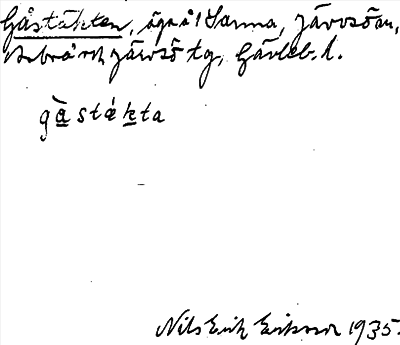 Gåstäkten, äga å! Sanna, Järvsöån,
och Järvsö tg, Gävleb. l.
gàstákta
Nils Erik Eriksson 1935.